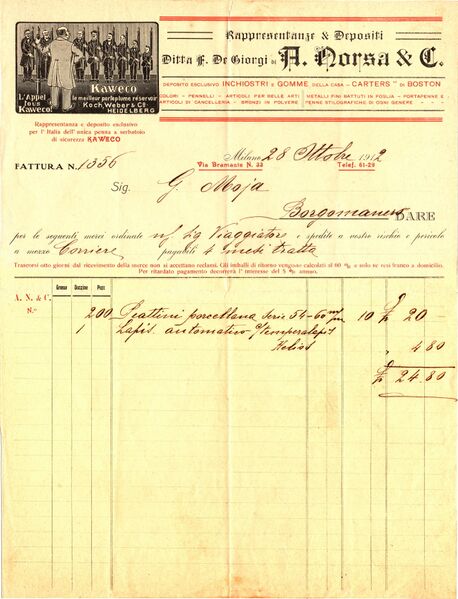 L'Appel
fous
Kaweco!
Kaweco
le meilleur porteplume réservoir
Koch, Weber & Cº
HEIDELBERG
Rappresentanza e deposito esclusivo
per l'Italia dell'unica penna a serbatoio
di sicurezza KAWECO
Rappresentanze & Depositi
Ditta F. De Giorgi di A. Norsa & C.
DEPOSITO ESCLUSIVO INCHIOSTRI e GOMME DELLA CASA "CARTERS" DI BOSTON
COLORI - PENNELLI - ARTICOLI PER BELLE ARTI
ARTICOLI DI CANCELLERIA - BRONZI IN POLVERE
METALLI FINI BATTUTI IN FOGLIA - PORTAPENNE E
PENNE STILOGRAFICHE DI OGNI GENERE
FATTURA N. 1356
Milano, 28 Ottobre 1912
Via Bramante N. 33 Telef. 61-29
Sig. G. Moja
Borgomanero
DARE
per le seguenti merci ordinate n/ Sg Viaggiatore e spedite a vostro rischio e pericolo
a mezzo Corriere pagabili 4 mesi tratta
Trascorsi otto giorni dal ricevimento della merce non si accettano reclami. Gli imballi di ritorno vengono calcolati al 60 % e solo se resi franco a domicilio.
Per ritardato pagamento decorrerà l'interesse del 5 % annuo.
A. N. & C. Grosse Dozzine Pezzi
N.º
200 Piattini porcellana serie 54-60 m/m 10 £ 20 -
1 Lapis automatico c/ temperalapis " 4 80
Helios
£ 24.80